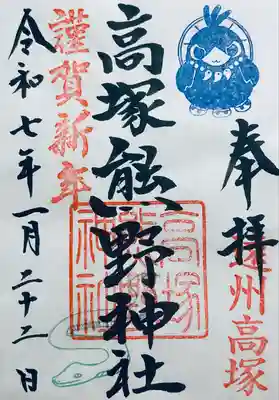 奉拝
遠州高塚
高塚熊野神社
高塚熊野神社
謹賀新年
令和七年一月二十二日